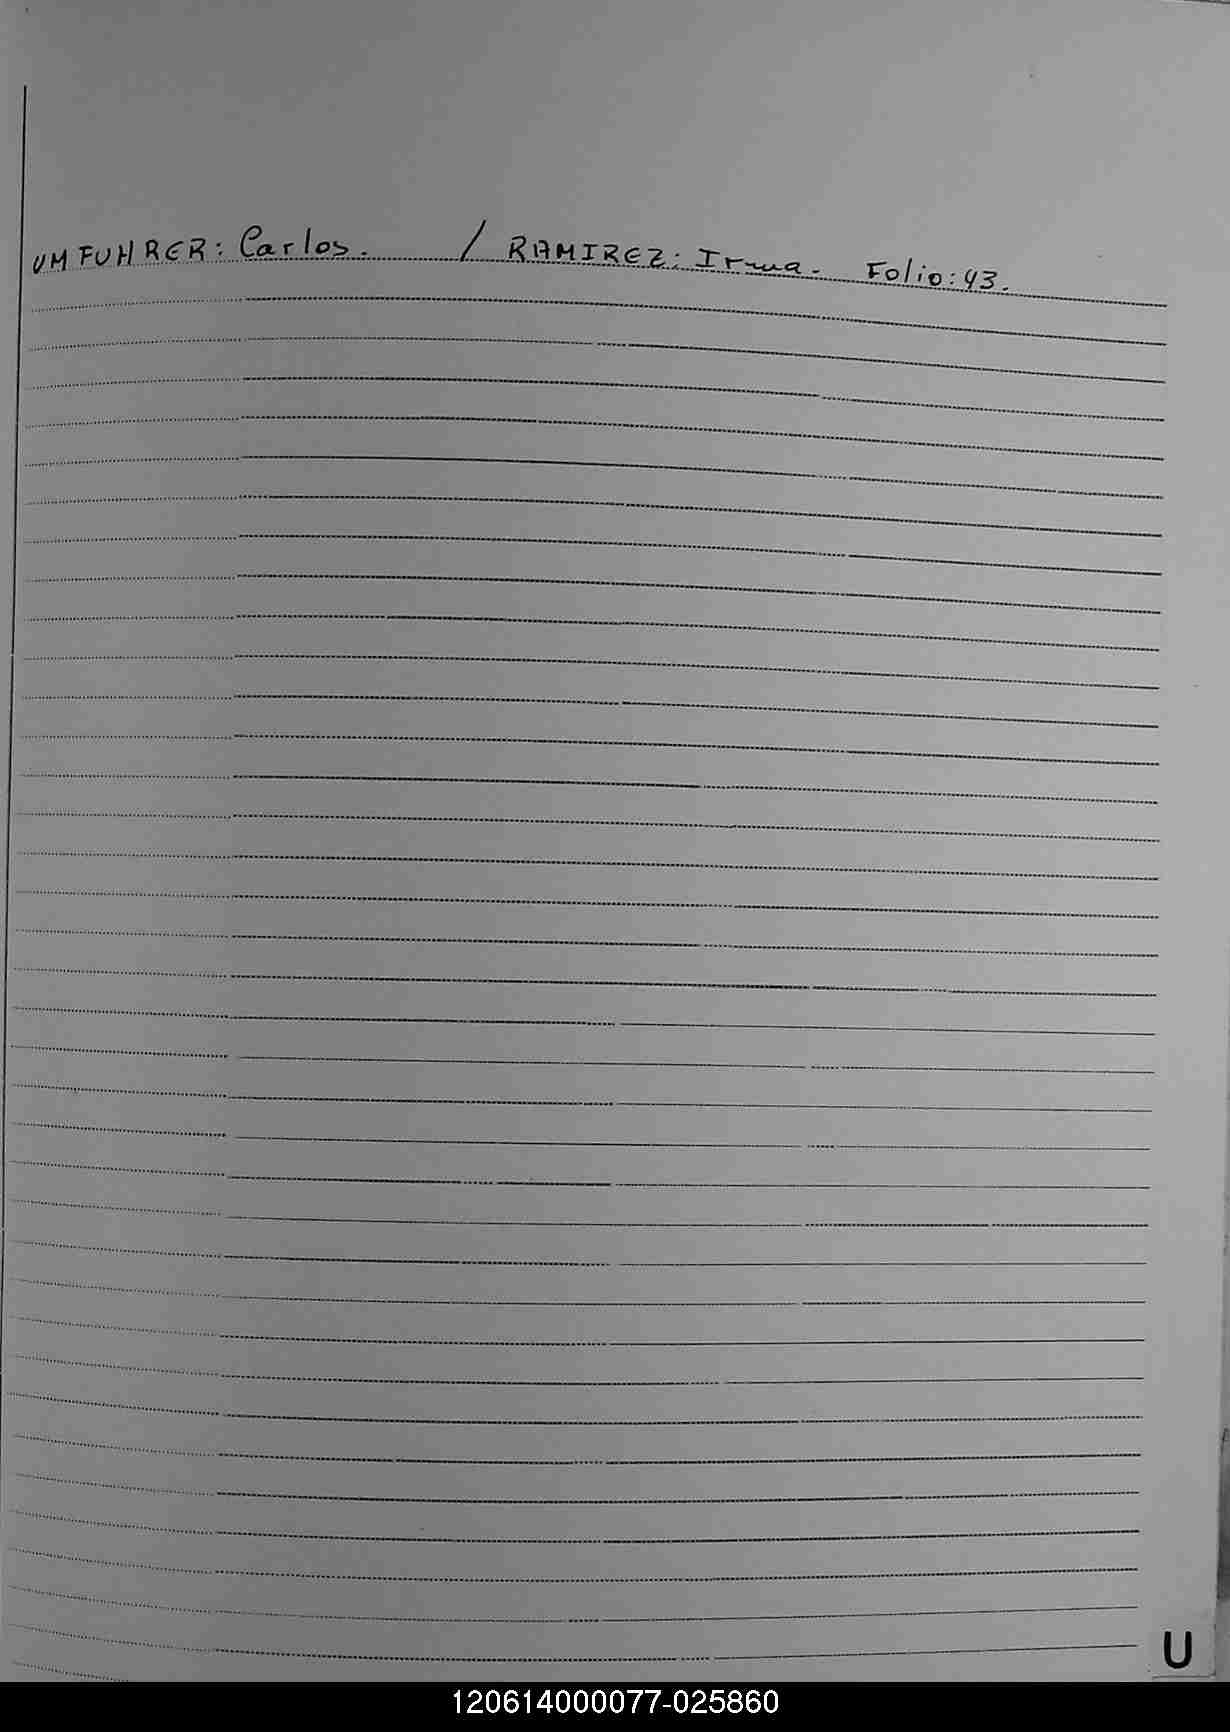 UMFUHRER: Carlos. / RAMIREZ: Irma. Folio: 43.
U
120614000077-025860